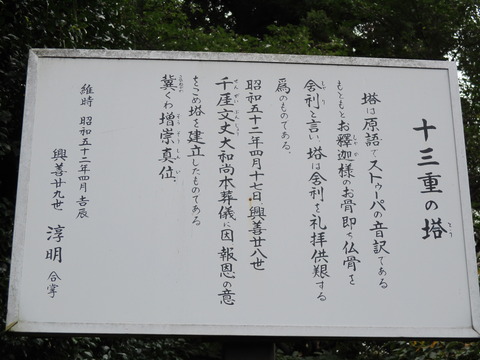 十三重の塔
塔は原語でストゥーパの音訳である
もともとお釋迦様のお骨即ち仏骨を
舎利と言い、塔は舎利を礼拝供養する
為のものである。
昭和五十二年四月十七日興善廿八世
千崖文丈大和尚本葬儀に因報恩の意
をこめ塔を建立したものである
冀くわ増崇真位。
維時 昭和五十二年四月 吉辰
興善廿九世 淳明 合掌